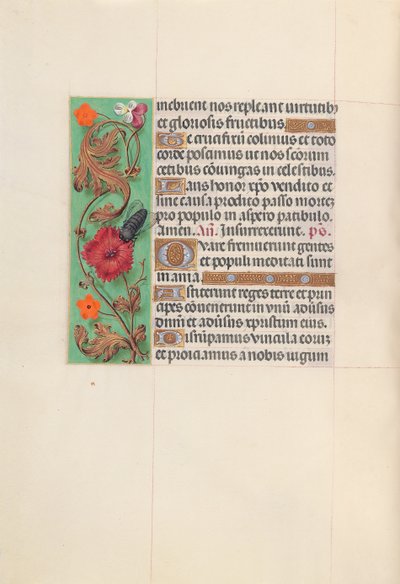 mebuent nos repleant uirtutibꝫ
et gloriosis fructibus.
Te crucifixū colimus et toto
corde poscimus ut nos scōrum
cetibus cōiungas in celestibus.
Laus honor xp̄o vendito et
sine causa prodito passo mortē
pro populo in aspero patibulo.
Amen. An̄. Insurrexerunt. ps̄.
Quare fremuerunt gentes
et populi meditati sunt
inania.
Astiterunt reges terre et prin
cipes cōuenerunt in vnū aduersus
dnm̄ et aduersus xpistum eius.
Dirumpamus vincula eorum
et proiciamus a nobis iugum